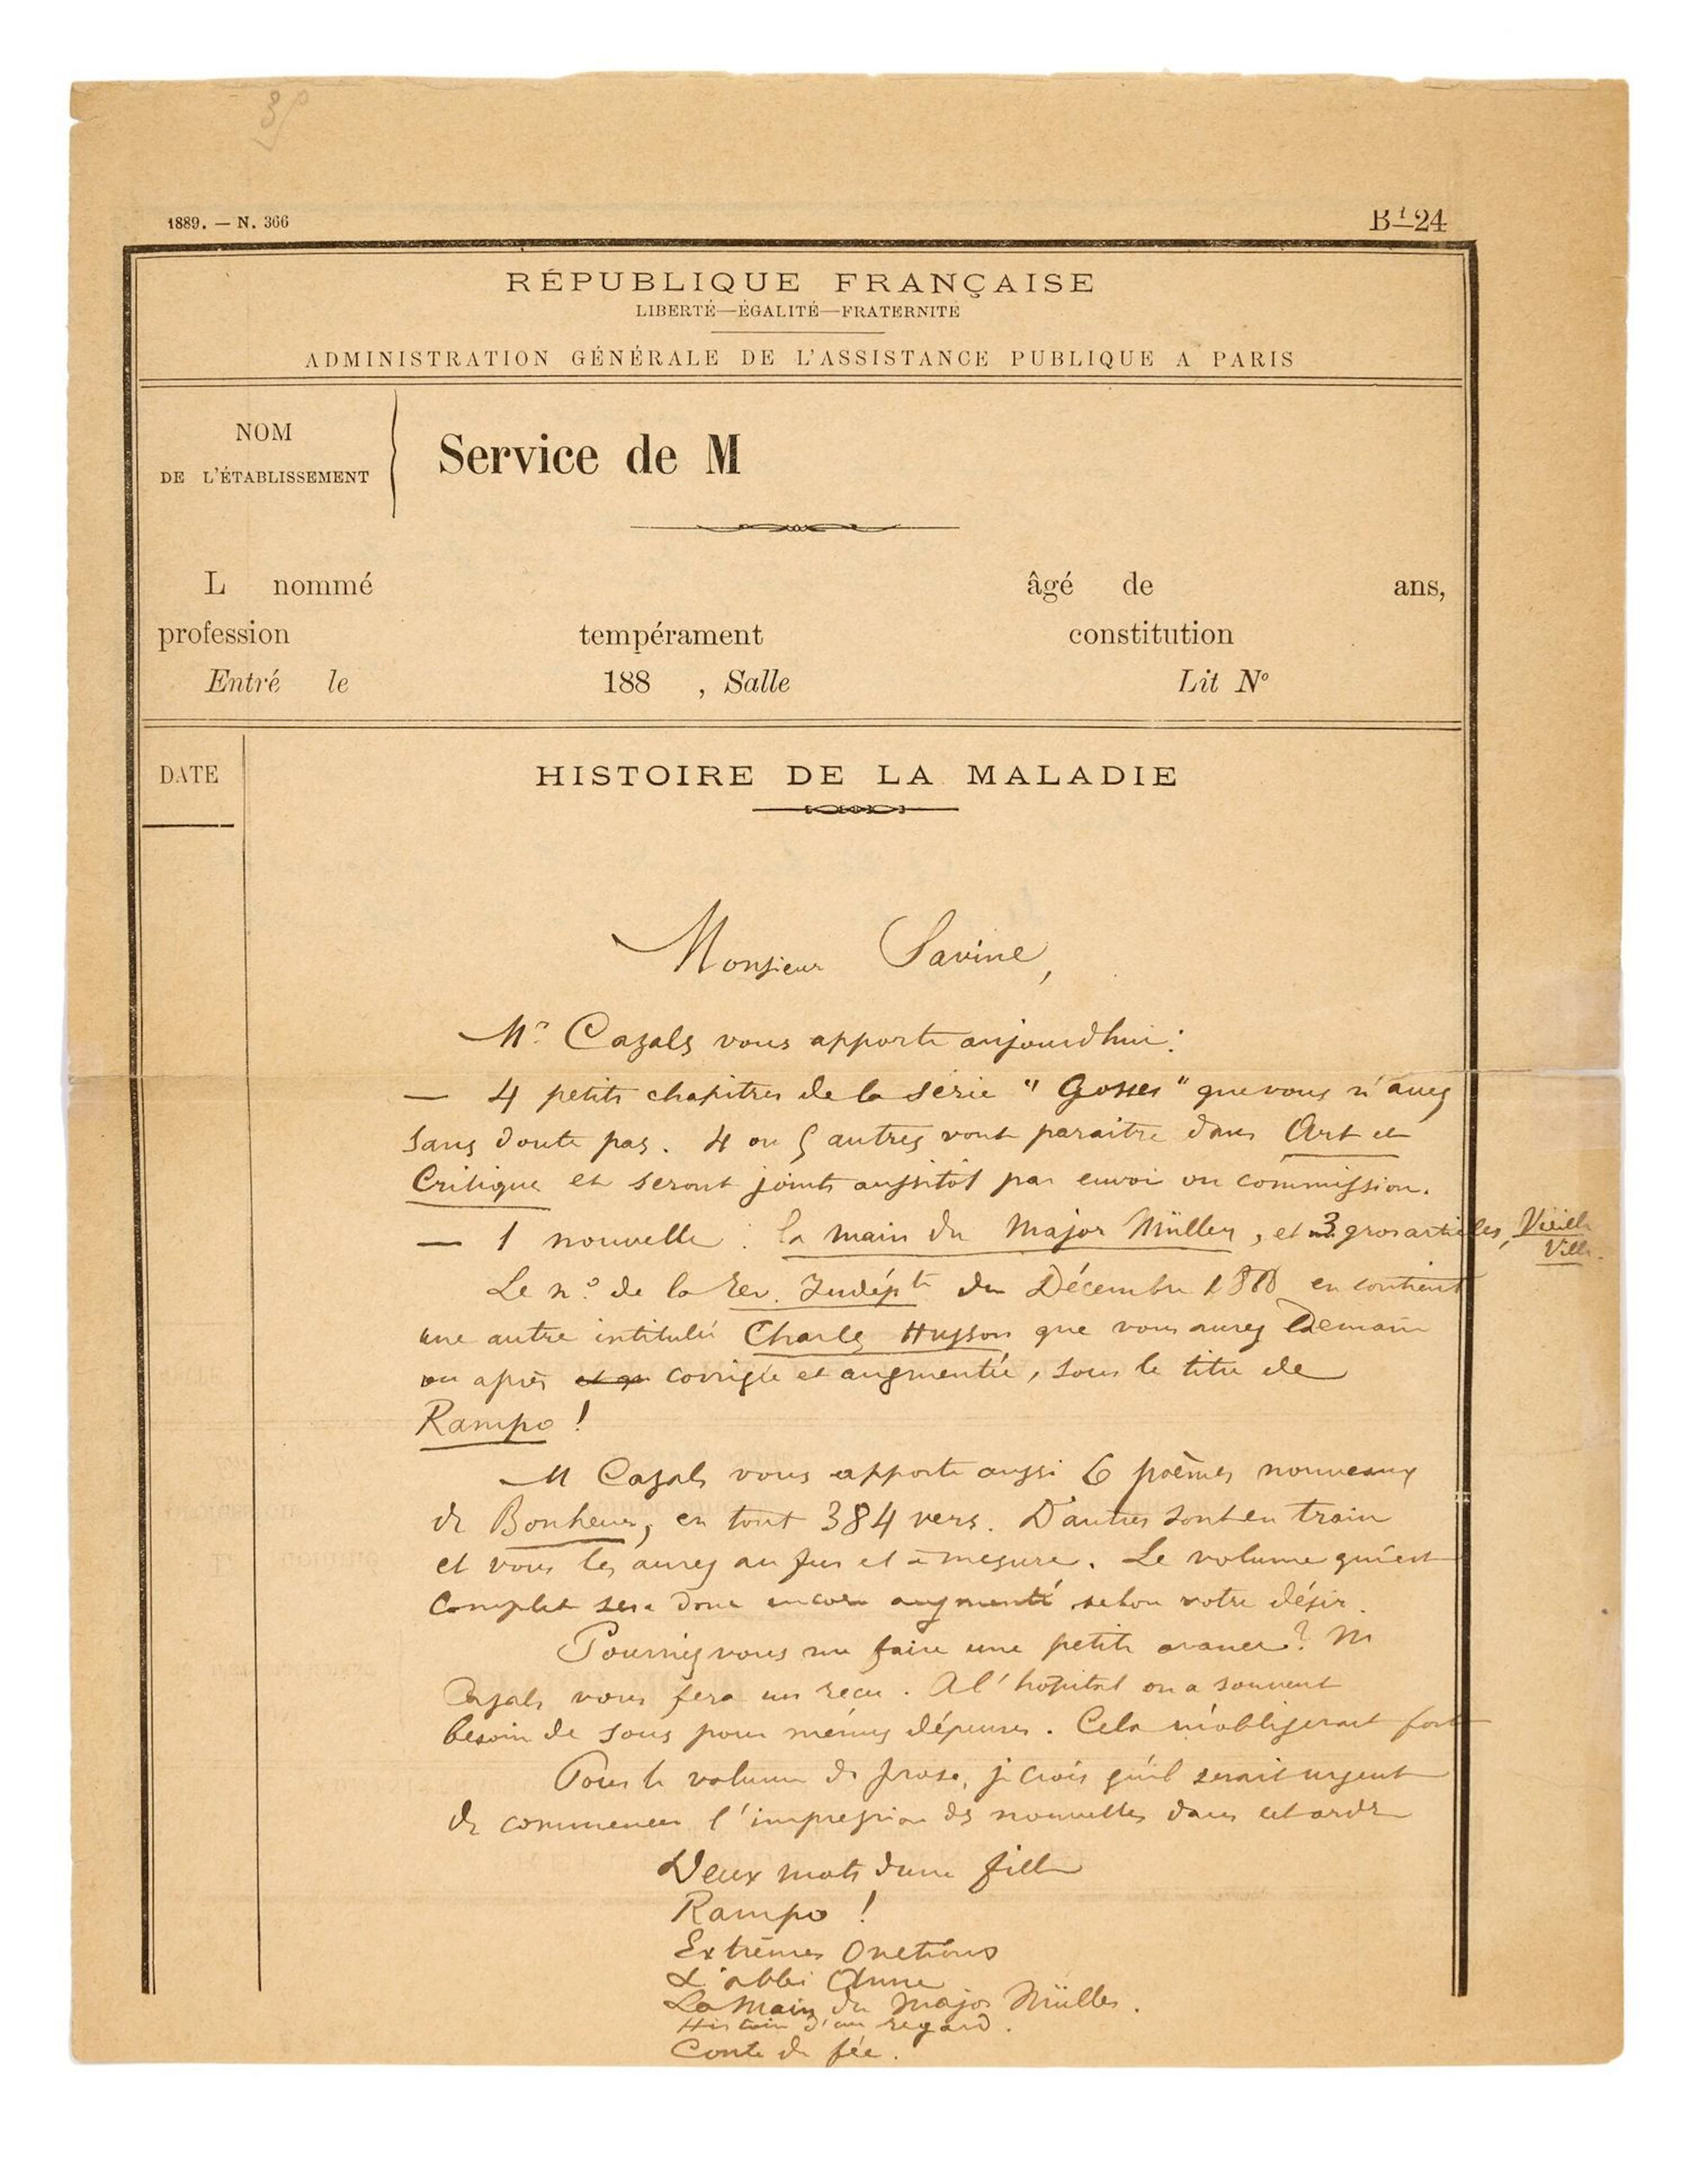 1889. — N. 366
B¹—24
RÉPUBLIQUE FRANÇAISE
LIBERTÉ—ÉGALITÉ—FRATERNITÉ
ADMINISTRATION GÉNÉRALE DE L'ASSISTANCE PUBLIQUE A PARIS
NOM
DE L'ÉTABLISSEMENT
Service de M
L nommé âgé de ans,
profession tempérament constitution
Entré le 188 , Salle Lit Nº
DATE
HISTOIRE DE LA MALADIE
Monsieur Savine,
Mr Cazals vous apporte aujourdhui :
— 4 petits chapitres de la série "Gosses" que vous n'avez
sans doute pas. 4 ou 5 autres vont paraître dans Art et
Critique et seront joints aussitôt par envoi ou commission.
— 1 nouvelle : la main du Major Müller, et 3 gros articles, Vieille
Ville.
Le nº de la Rev. Indépte de Décembre 1888 en contient
une autre intitulée Charles Husson que vous aurez Demain
ou après corrigée et augmentée, sous le titre de
Rampo !
M Cazals vous apporte aussi 6 poèmes nouveaux
de Bonheur, en tout 384 vers. D'autres sont en train
et vous les aurez au fur et à mesure. Le volume qui est
complet sera donc encore augmenté selon votre désir.
Pourriez vous me faire une petite avance ? M
Cazals vous fera un reçu. A l'hôpital on a souvent
besoin de sous pour menus dépenses. Cela m'obligerait fort
Pour le volume de prose, je crois qu'il serait urgent
de commencer l'impression des nouvelles dans cet ordre
Deux mots d'une fille
Rampo !
Extrêmes Onctions
L'abbé Anne
La Main du Major Müller.
Histoire d'un regard.
Conte de fée.